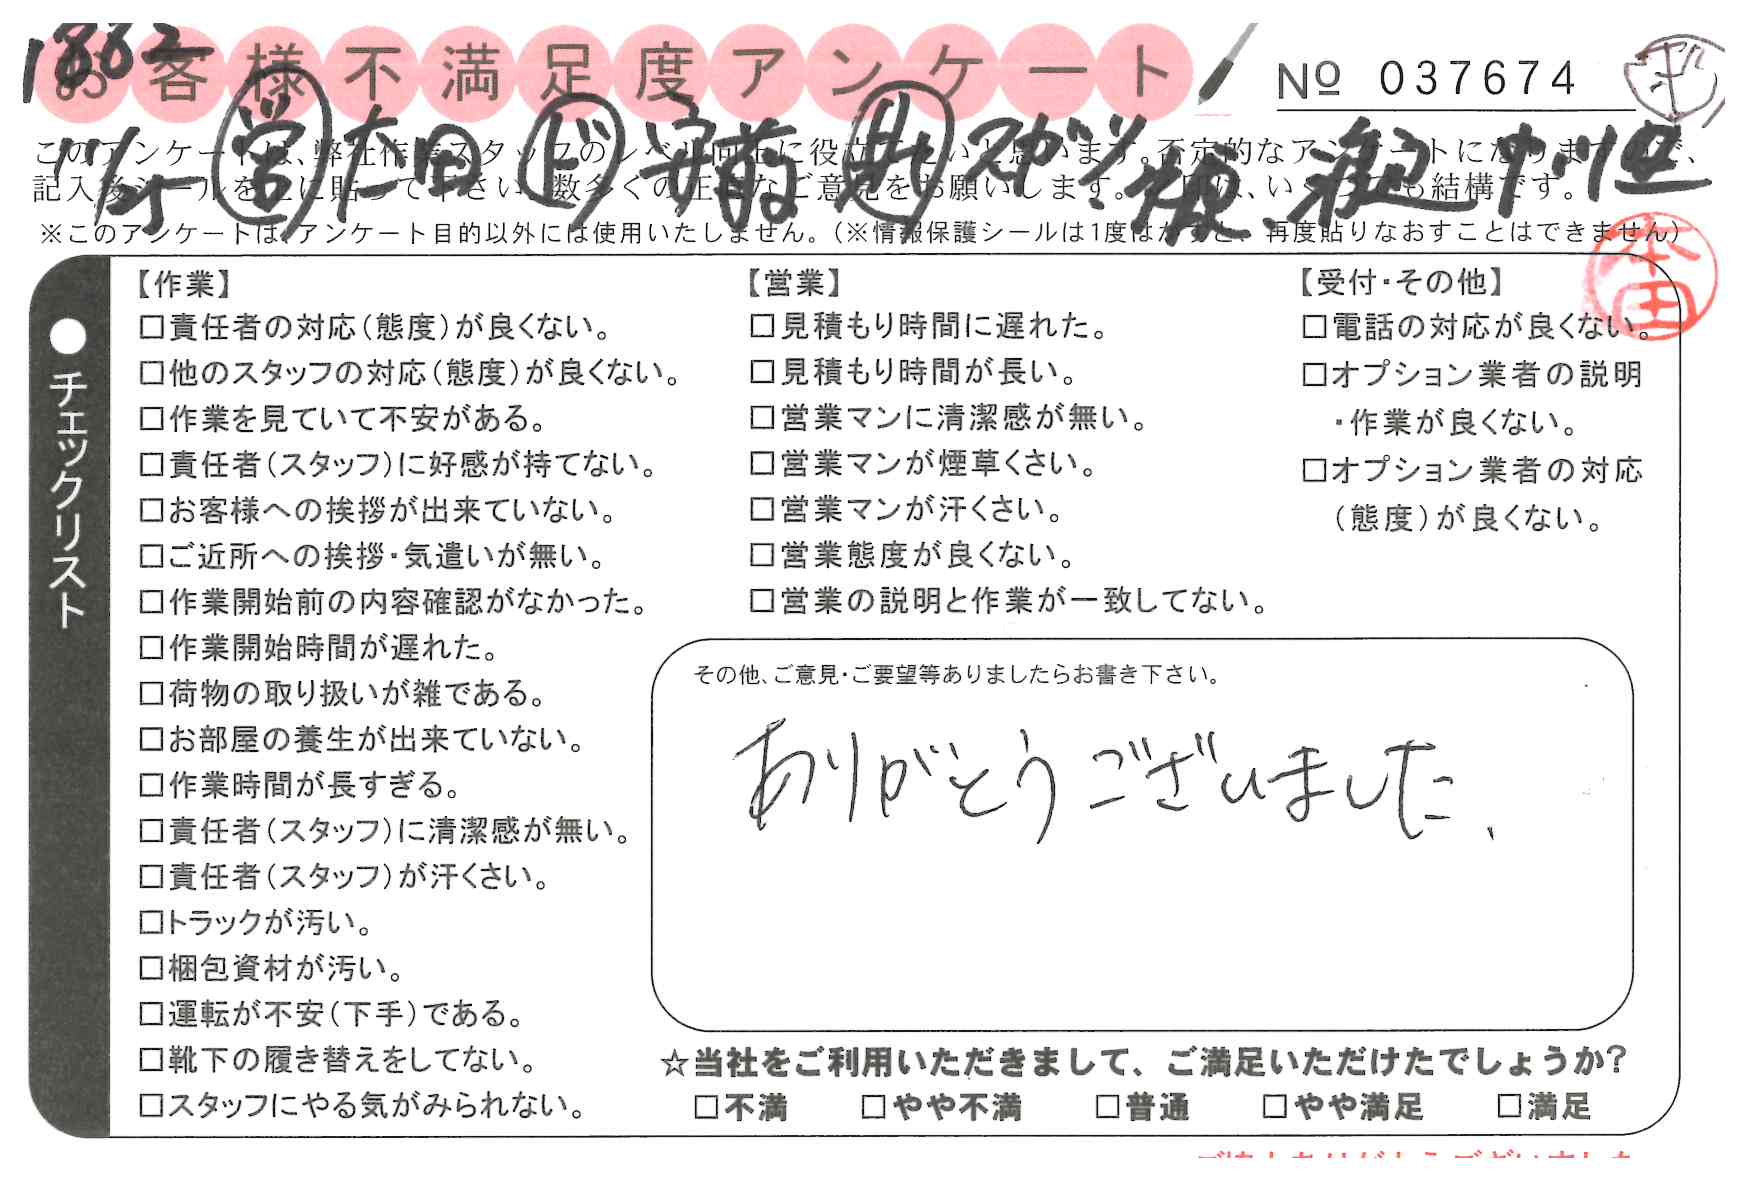 1882
お客様不満足度アンケート
№ 037674
このアンケートは、弊社作業スタッフのレベル向上に役立てたいと思います。否定的なアンケートになりますので、
11/5 営 太田 ド 安前 助 スガソ
記入後シールを上に貼って下さい。数多くの正直なご意見をお願いします。
いくつでも結構です。
※このアンケートは、アンケート目的以外には使用いたしません。（※情報保護シールは1度はがすと、再度貼りなおすことはできません）
本田
チェックリスト
【作業】
□責任者の対応（態度）が良くない。
□他のスタッフの対応（態度）が良くない。
□作業を見ていて不安がある。
□責任者（スタッフ）に好感が持てない。
□お客様への挨拶が出来ていない。
□ご近所への挨拶・気遣いが無い。
□作業開始前の内容確認がなかった。
□作業開始時間が遅れた。
□荷物の取り扱いが雑である。
□お部屋の養生が出来ていない。
□作業時間が長すぎる。
□責任者（スタッフ）に清潔感が無い。
□責任者（スタッフ）が汗くさい。
□トラックが汚い。
□梱包資材が汚い。
□運転が不安（下手）である。
□靴下の履き替えをしてない。
□スタッフにやる気がみられない。
【営業】
□見積もり時間に遅れた。
□見積もり時間が長い。
□営業マンに清潔感が無い。
□営業マンが煙草くさい。
□営業マンが汗くさい。
□営業態度が良くない。
□営業の説明と作業が一致してない。
【受付・その他】
□電話の対応が良くない。
□オプション業者の説明
・作業が良くない。
□オプション業者の対応
（態度）が良くない。
その他、ご意見・ご要望等ありましたらお書き下さい。
ありがとうございました、
☆当社をご利用いただきまして、ご満足いただけたでしょうか？
□不満 □やや不満 □普通 □やや満足 □満足